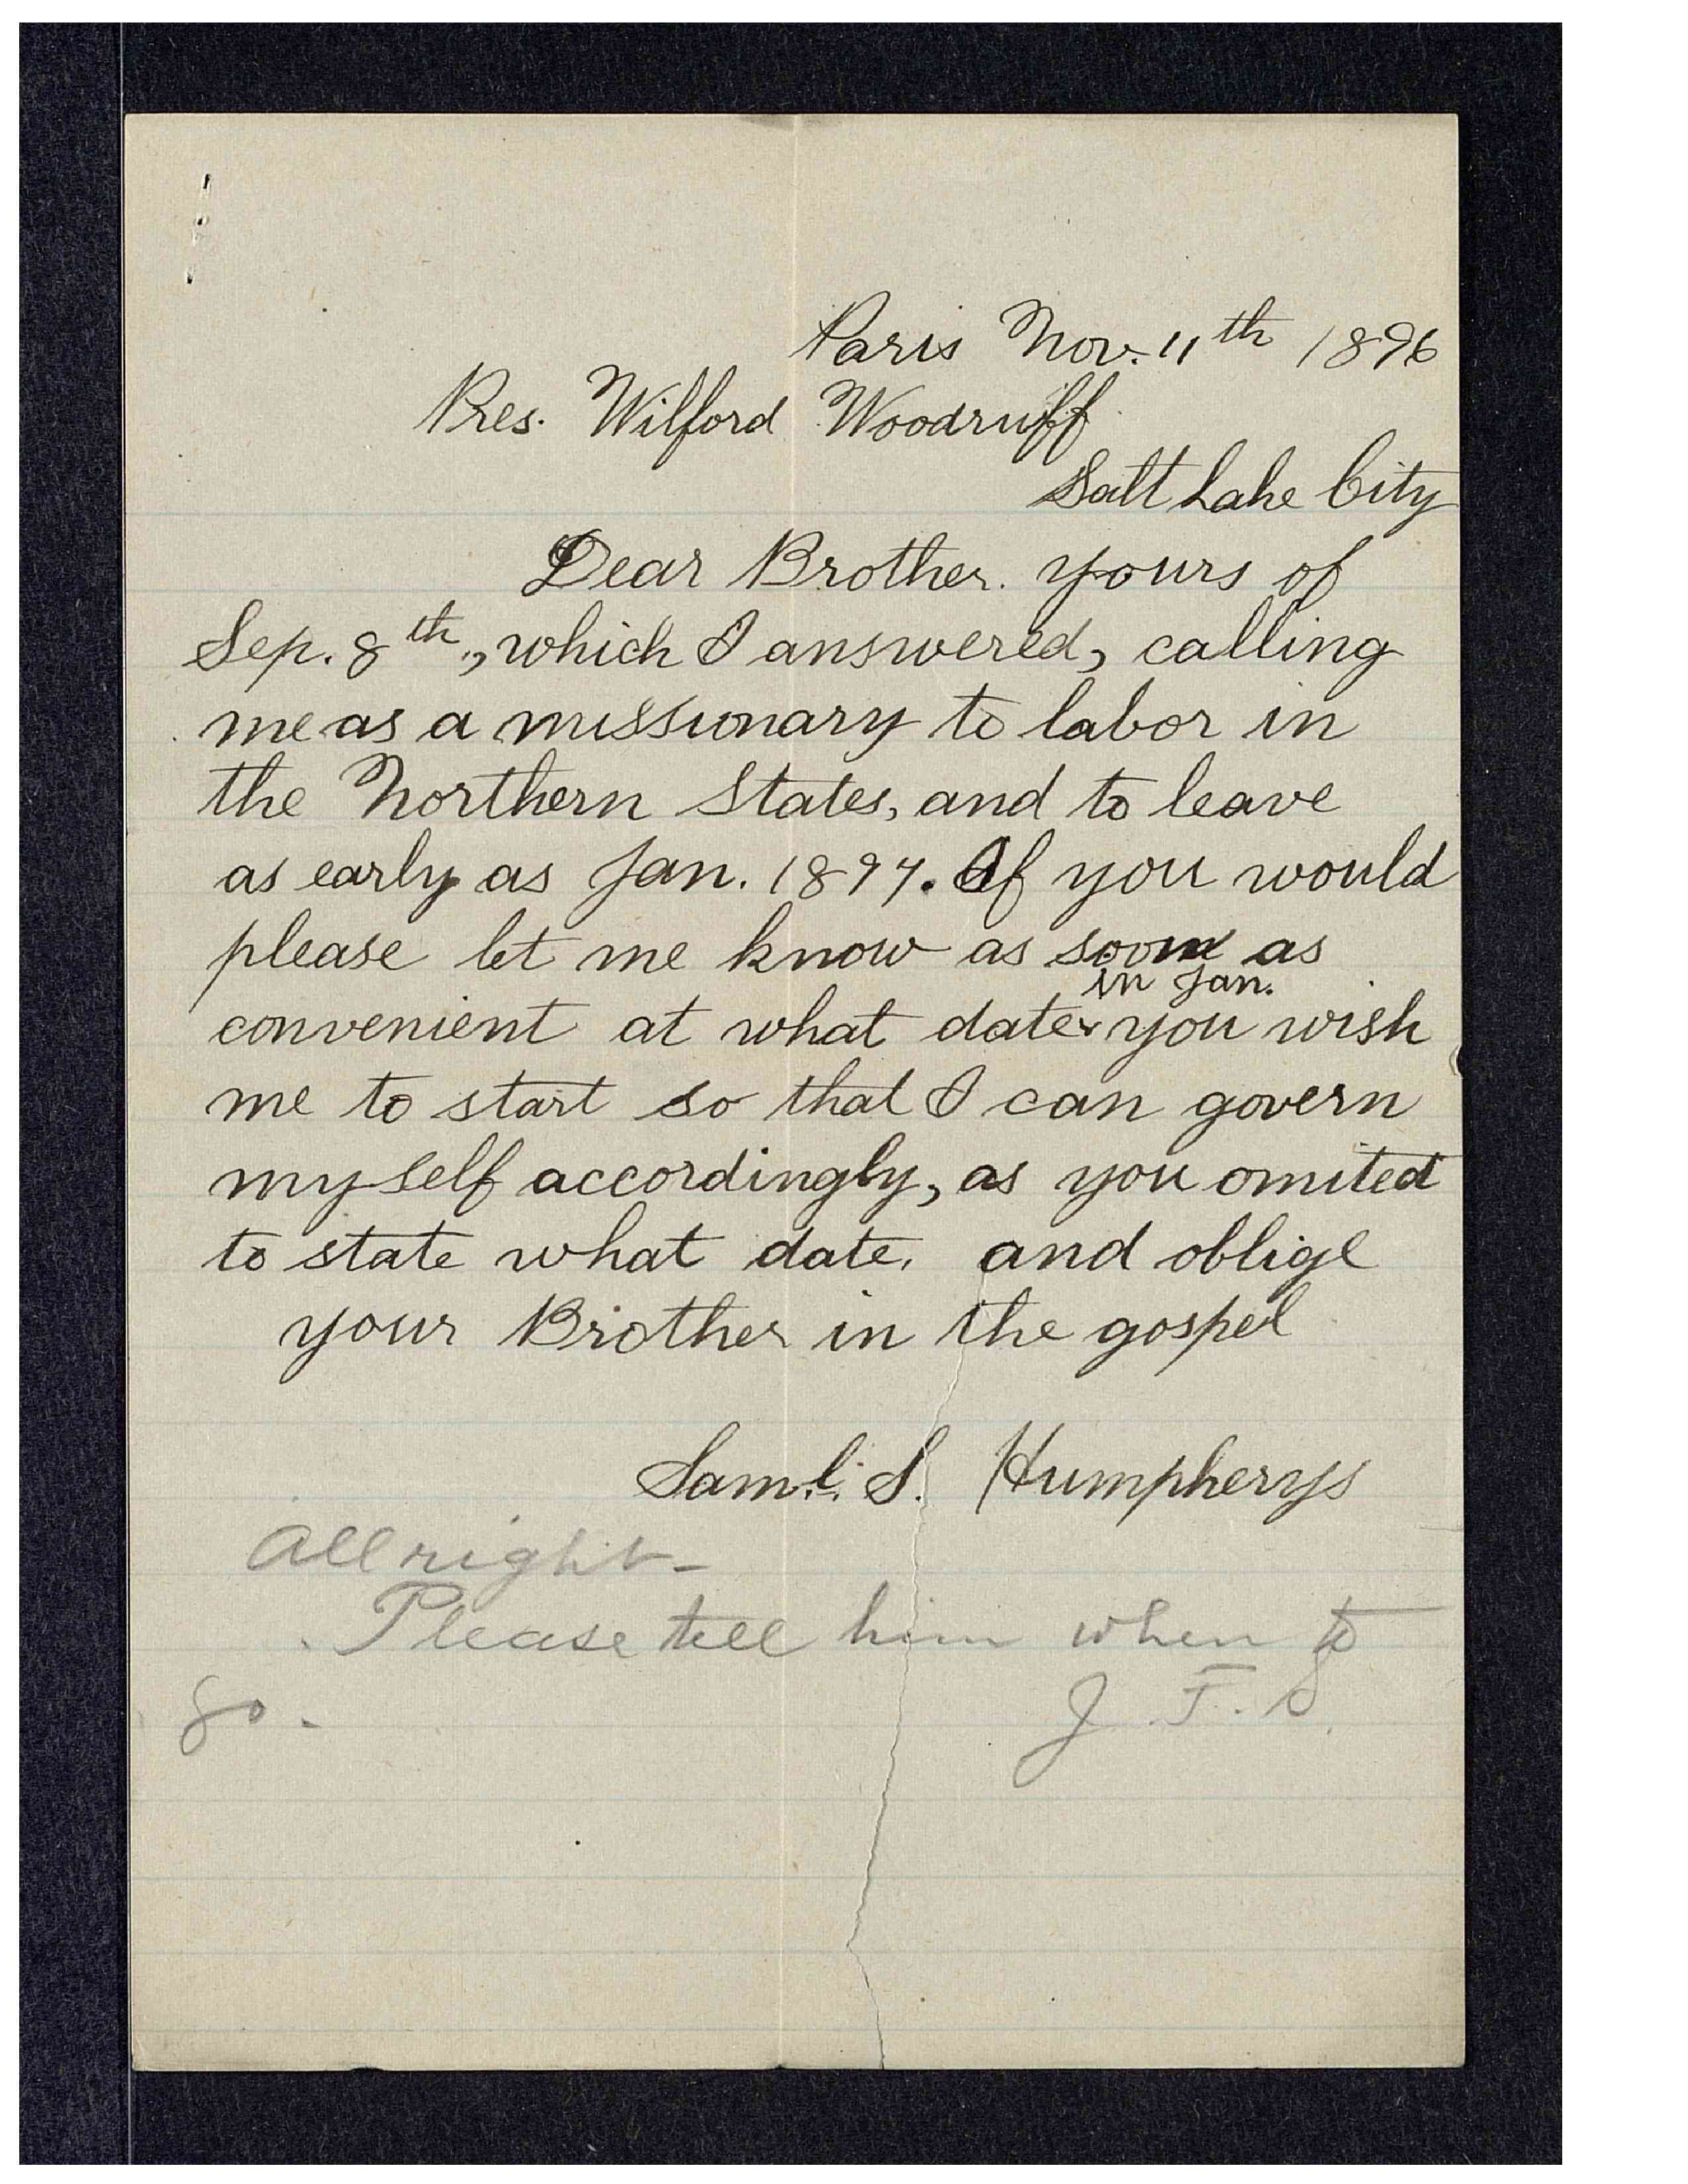 Paris Nov. 11th 1896
Pres. Wilford Woodruff
Salt Lake City
Dear Brother. yours of
Sep. 8th., which I answered, calling
me as a missionary to labor in
the Northern States, and to leave
as early as Jan. 1897. If you would
please let me know as soon as
in Jan.
convenient at what date you wish
me to start so that I can govern
myself accordingly, as you omited
to state what date. and oblige
your Brother in the gospel
Saml. S. Humpherys
All right-
Please tell him when to
go.
J. F. S.